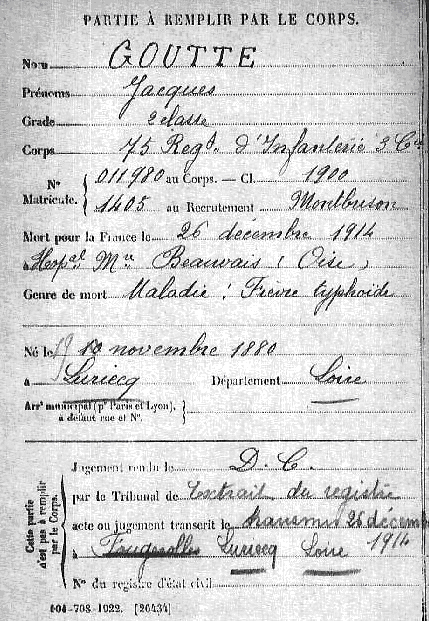 PARTIE À REMPLIR PAR LE CORPS.
Nom GOUTTE
Prénoms Jacques
Grade 2 classe
Corps 75 Regt. d'Infanterie 3 Cie
N° Matricule. { 011980 au Corps. — Cl. 1900
1405 au Recrutement Montbrison
Mort pour la France le 26 décembre 1914
à Hopal Mre Beauvais (Oise)
Genre de mort Maladie : Fièvre typhoïde
Né le 19 novembre 1880
à Luriecq Département Loire
Arrt municipal (pr Paris et Lyon), à défaut rue et N°.
Cette partie n'est pas à remplir par le Corps.
Jugement rendu le D. C.
par le Tribunal de Extrait du registre
acte ou jugement transcrit le transmis 26 décembre 1914
à Fougerolles Luriecq Loire
N° du registre d'état civil
604-708-1922. [26434]